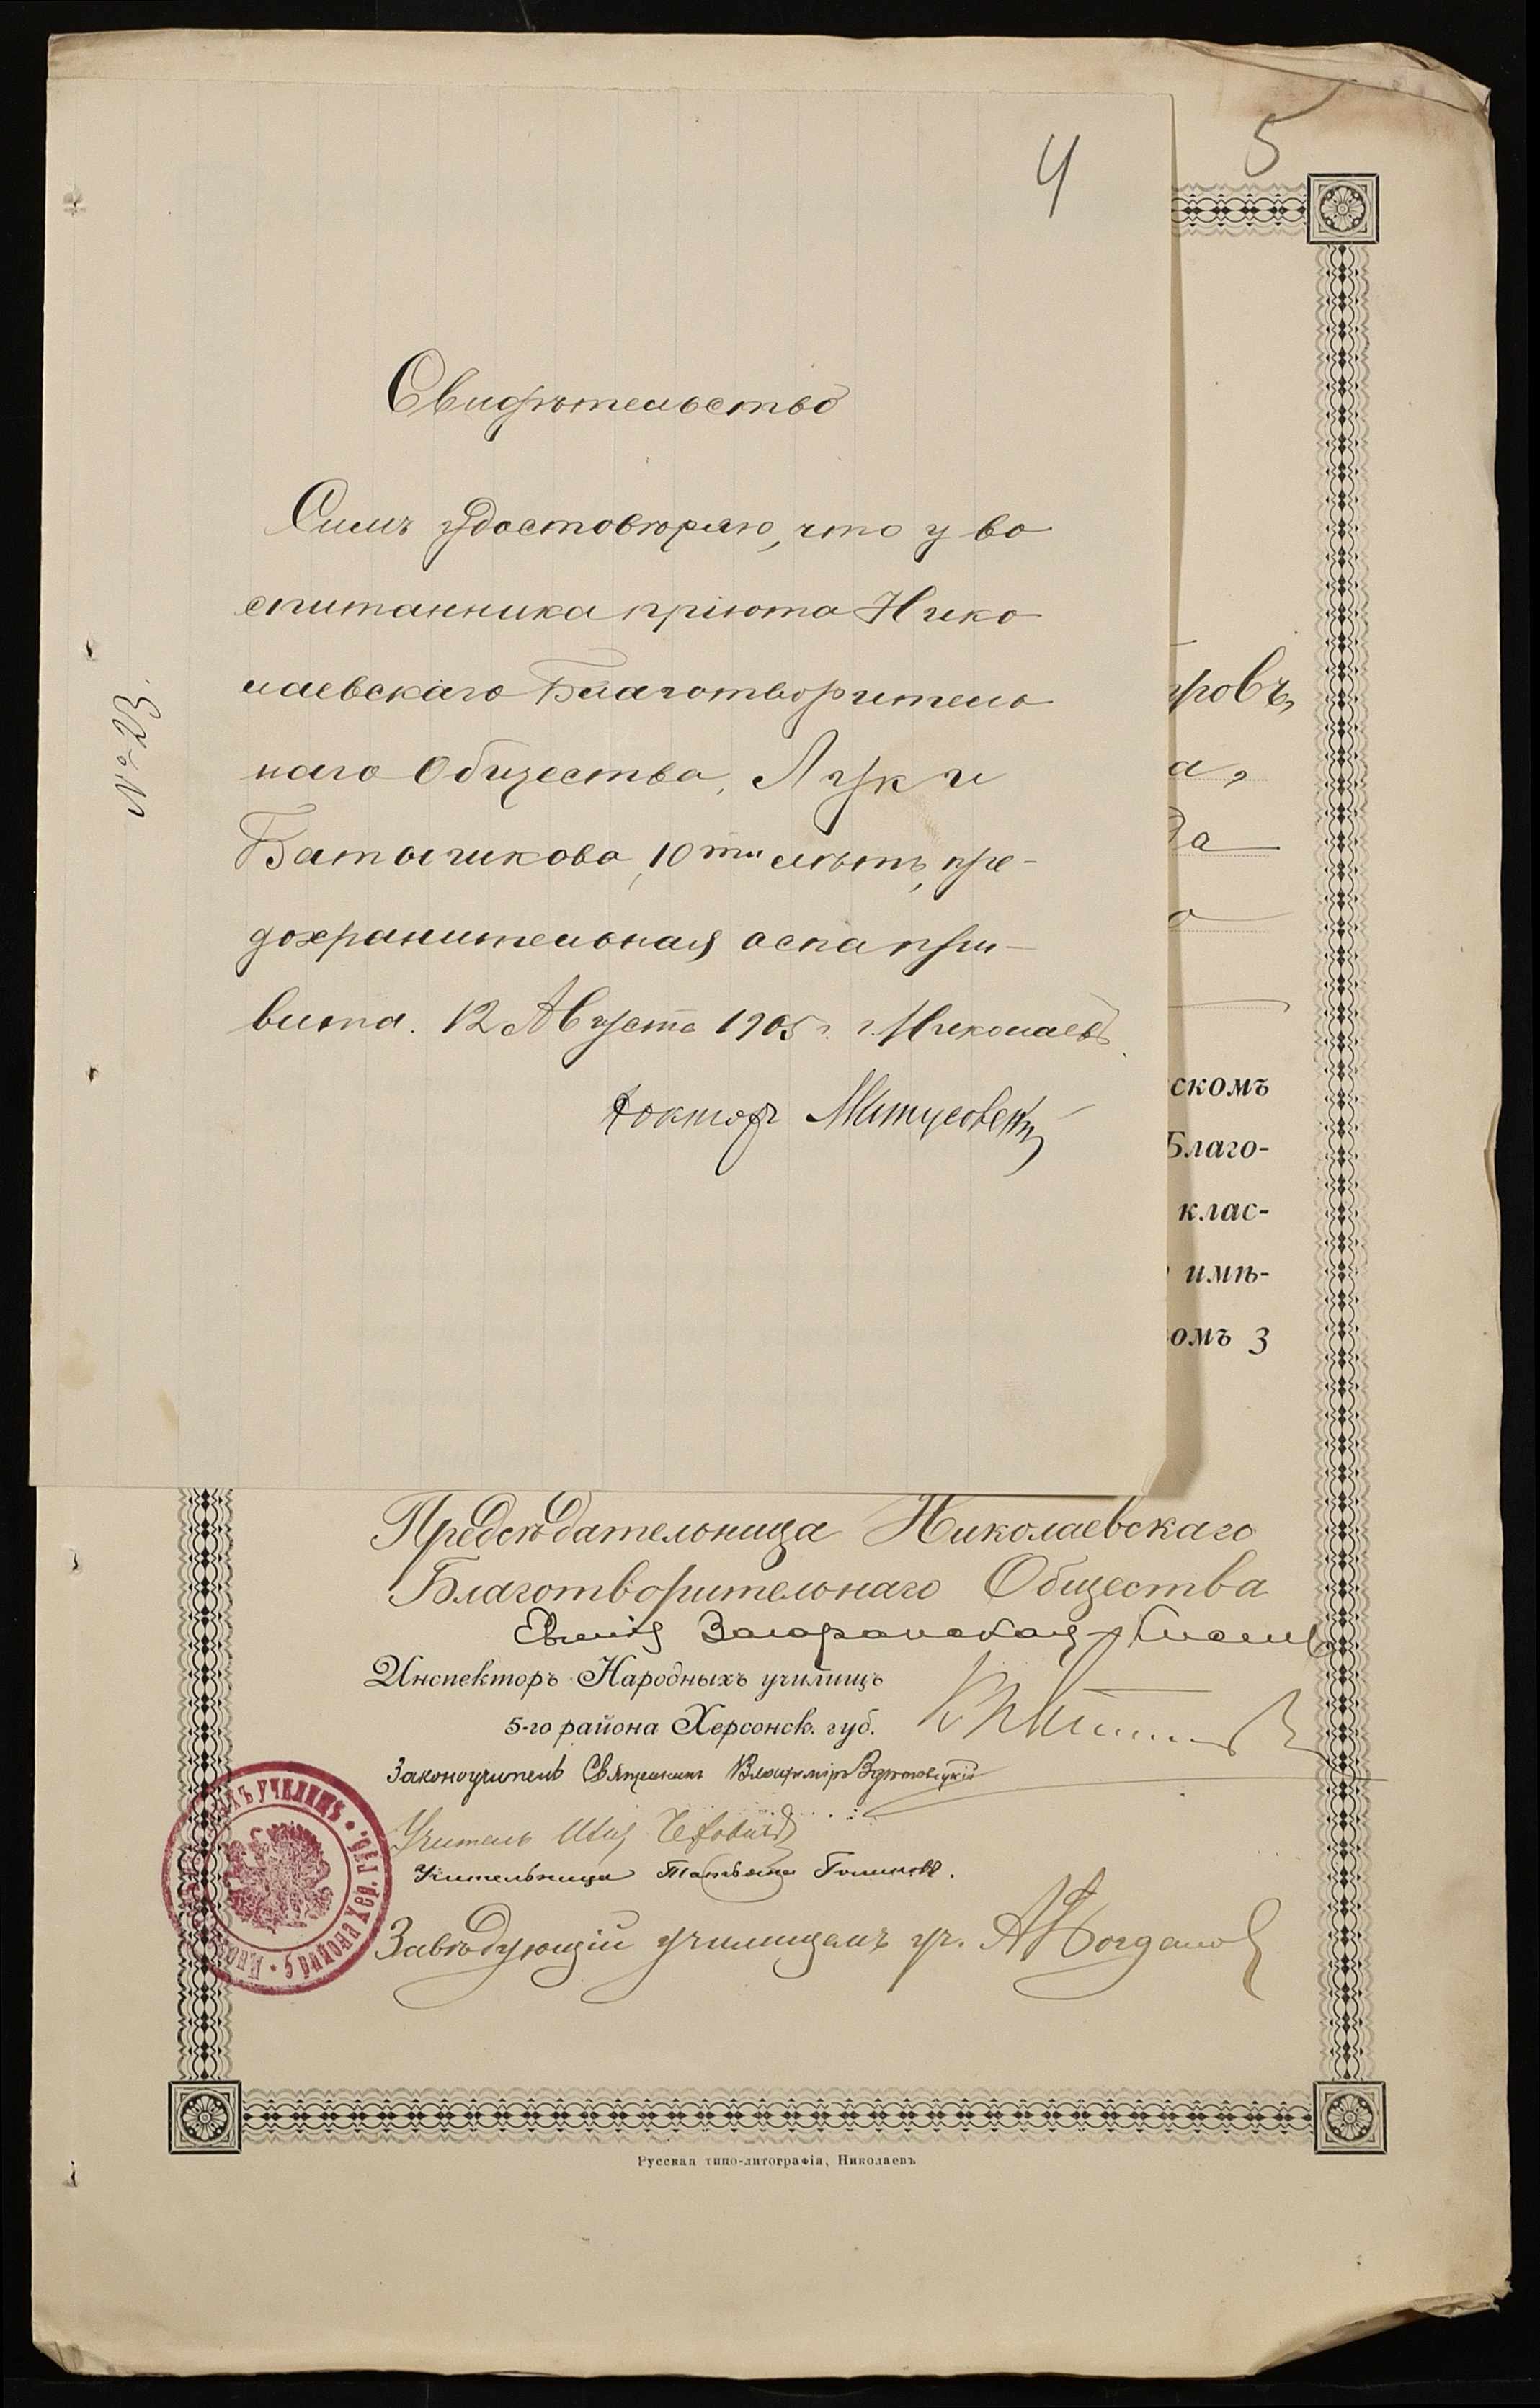 4
5
№ 23.
Свидѣтельство
Симъ удостовѣряю, что у во
спитанника пріюта Нико
лаевскаго Благотворитель
наго Общества, Луки
Батычикова, 10ти лѣтъ, пре-
дохранительная оспа при-
вита. 12 Августа 1905 г. г. Николаевъ
Докторъ Матусовскій
ровъ,
а,
да
о
скомъ
Благо-
клас-
имѣ-
омъ 3
Предсѣдательница Николаевскаго
Благотворительнаго Общества
Инспекторъ Народныхъ училищъ
5-го района Херсонск. губ.
Законоучитель Священникъ Владиміръ
Учитель
Учительница Татьяна
Завѣдующій училищемъ уч. А Богданов
Русская типо-литографія, Николаевъ